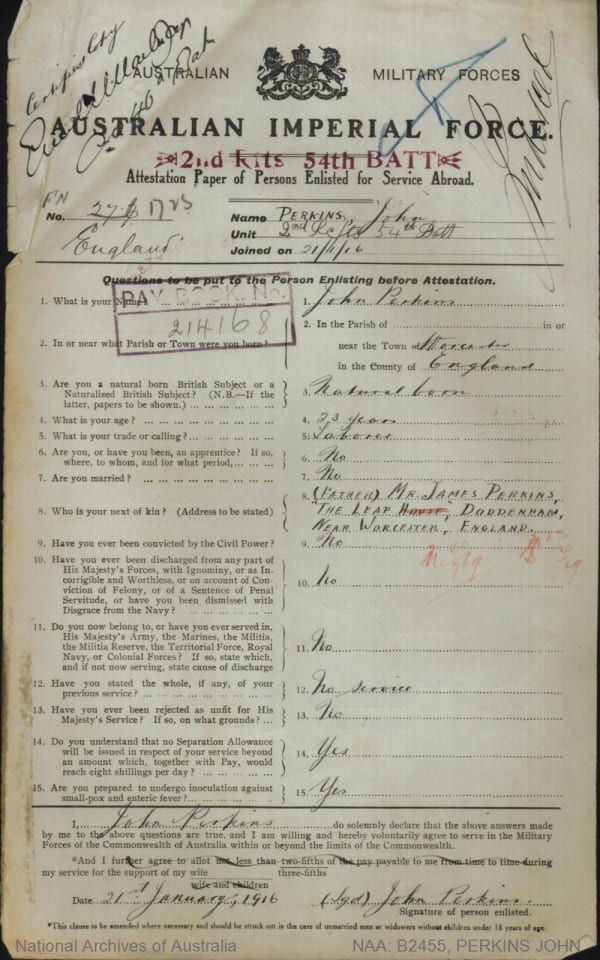 Certified Copy
AUSTRALIAN MILITARY FORCES
AUSTRALIAN IMPERIAL FORCE.
2nd Rfts 54th BATT
Attestation Paper of Persons Enlisted for Service Abroad.
No. 1723
Name PERKINS, John
Unit 2nd Rfts 54th Batt
Joined on 21/1/16
England
Questions to be put to the Person Enlisting before Attestation.
PAY BOOK No.
214168
1. What is your Name? 1. John Perkins
2. In or near what Parish or Town were you born? 2. In the Parish of in or
near the Town of Worcester
in the County of England
3. Are you a natural born British Subject or a
Naturalized British Subject? (N.B.—If the
latter, papers to be shown.) 3. Natural born
4. What is your age? 4. 23 years
5. What is your trade or calling? 5. Laborer
6. Are you, or have you been, an apprentice? If so,
where, to whom, and for what period, 6. No
7. Are you married? 7. No
8. Who is your next of kin? (Address to be stated) 8. (FATHER) MR. JAMES PERKINS,
"THE LEAP HOUSE, DODDENHAM,
NEAR WORCESTER, ENGLAND.
9. Have you ever been convicted by the Civil Power? 9. No
10. Have you ever been discharged from any part of
His Majesty's Forces, with Ignominy, or as In-
corrigible and Worthless, or on account of Con-
viction of Felony, or of a Sentence of Penal
Servitude, or have you been dismissed with
Disgrace from the Navy? 10. No
11. Do you now belong to, or have you ever served in,
His Majesty's Army, the Marines, the Militia,
the Militia Reserve, the Territorial Force, Royal
Navy, or Colonial Forces? If so, state which,
and if not now serving, state cause of discharge 11. No
12. Have you stated the whole, if any, of your
previous service? 12. No service
13. Have you ever been rejected as unfit for His
Majesty's Service? If so, on what grounds? 13. No
14. Do you understand that no Separation Allowance
will be issued in respect of your service beyond
an amount which, together with Pay, would
reach eight shillings per day? 14. Yes
15. Are you prepared to undergo inoculation against
small-pox and enteric fever? 15. Yes
I, John Perkins do solemnly declare that the above answers made
by me to the above questions are true, and I am willing and hereby voluntarily agree to serve in the Military
Forces of the Commonwealth of Australia within or beyond the limits of the Commonwealth.
*And I further agree to allot not less than two-fifths of the pay payable to me from time to time during
three-fifths
my service for the support of my wife
wife and children
Date 21st January, 1916 (Sgd) John Perkins.
Signature of person enlisted.
*This clause to be amended where necessary and should be struck out in the case of unmarried men or widowers without children under 18 years of age.
National Archives of Australia NAA: B2455, PERKINS JOHN